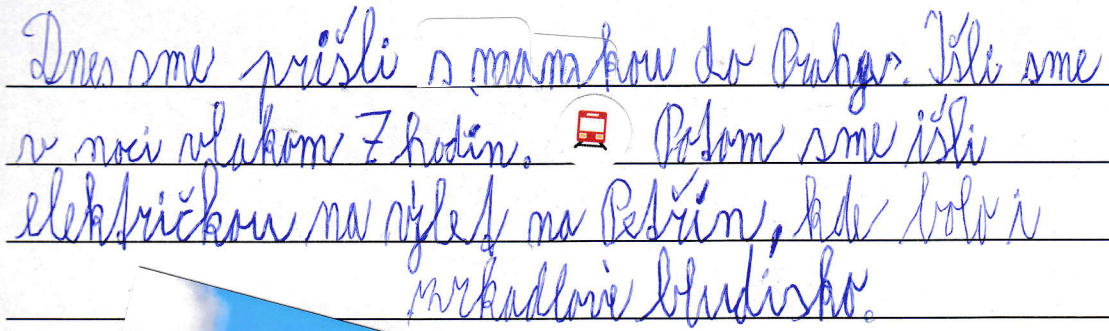 Dnes sme prišli s mamkou do Prahy. Išli sme
v noci vlakom 7 hodín. Potom sme išli
električkou na výlet na Petřín, kde bolo i
zrkadlové bludisko.